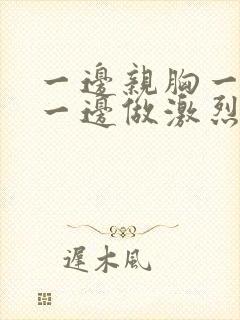 一邊親胸一
一邊做激烈
遲木風